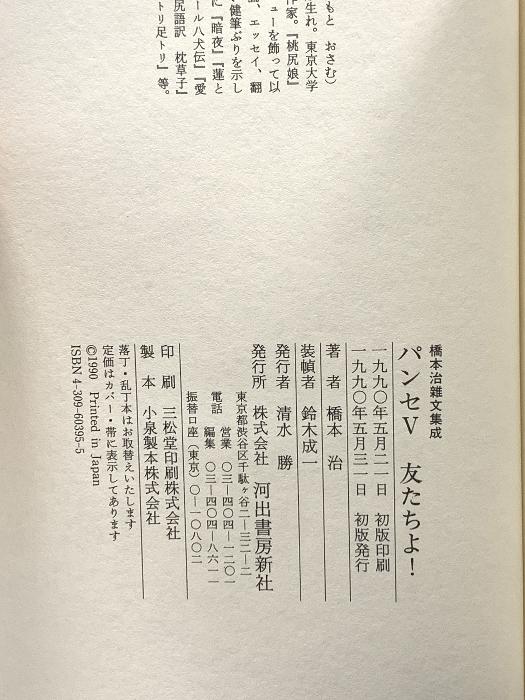 もと　おさむ）
生れ。東京大学
作家。『桃尻娘』
ューを飾って以
、エッセイ、翻
い健筆ぶりを示し
に『暗夜』『蓮と
ール八犬伝』『愛
尻語訳　枕草子』
トリ足トリ』等。
橋本治雑文集成
パンセⅤ　友たちよ！
一九九〇年五月二一日　初版印刷
一九九〇年五月三一日　初版発行
著　者　橋本　治
装幀者　鈴木成一
発行者　清水　勝
発行所　株式会社　河出書房新社
東京都渋谷区千駄ヶ谷二―三二―二
電話　営業　〇三―四〇四―一二〇一
編集　〇三―四〇四―八六一一
振替口座（東京）〇―一〇八〇二
印　刷　三松堂印刷株式会社
製　本　小泉製本株式会社
落丁・乱丁本はお取替えいたします
定価はカバー・帯に表示してあります
©1990 Printed in Japan
ISBN 4-309-60395-5